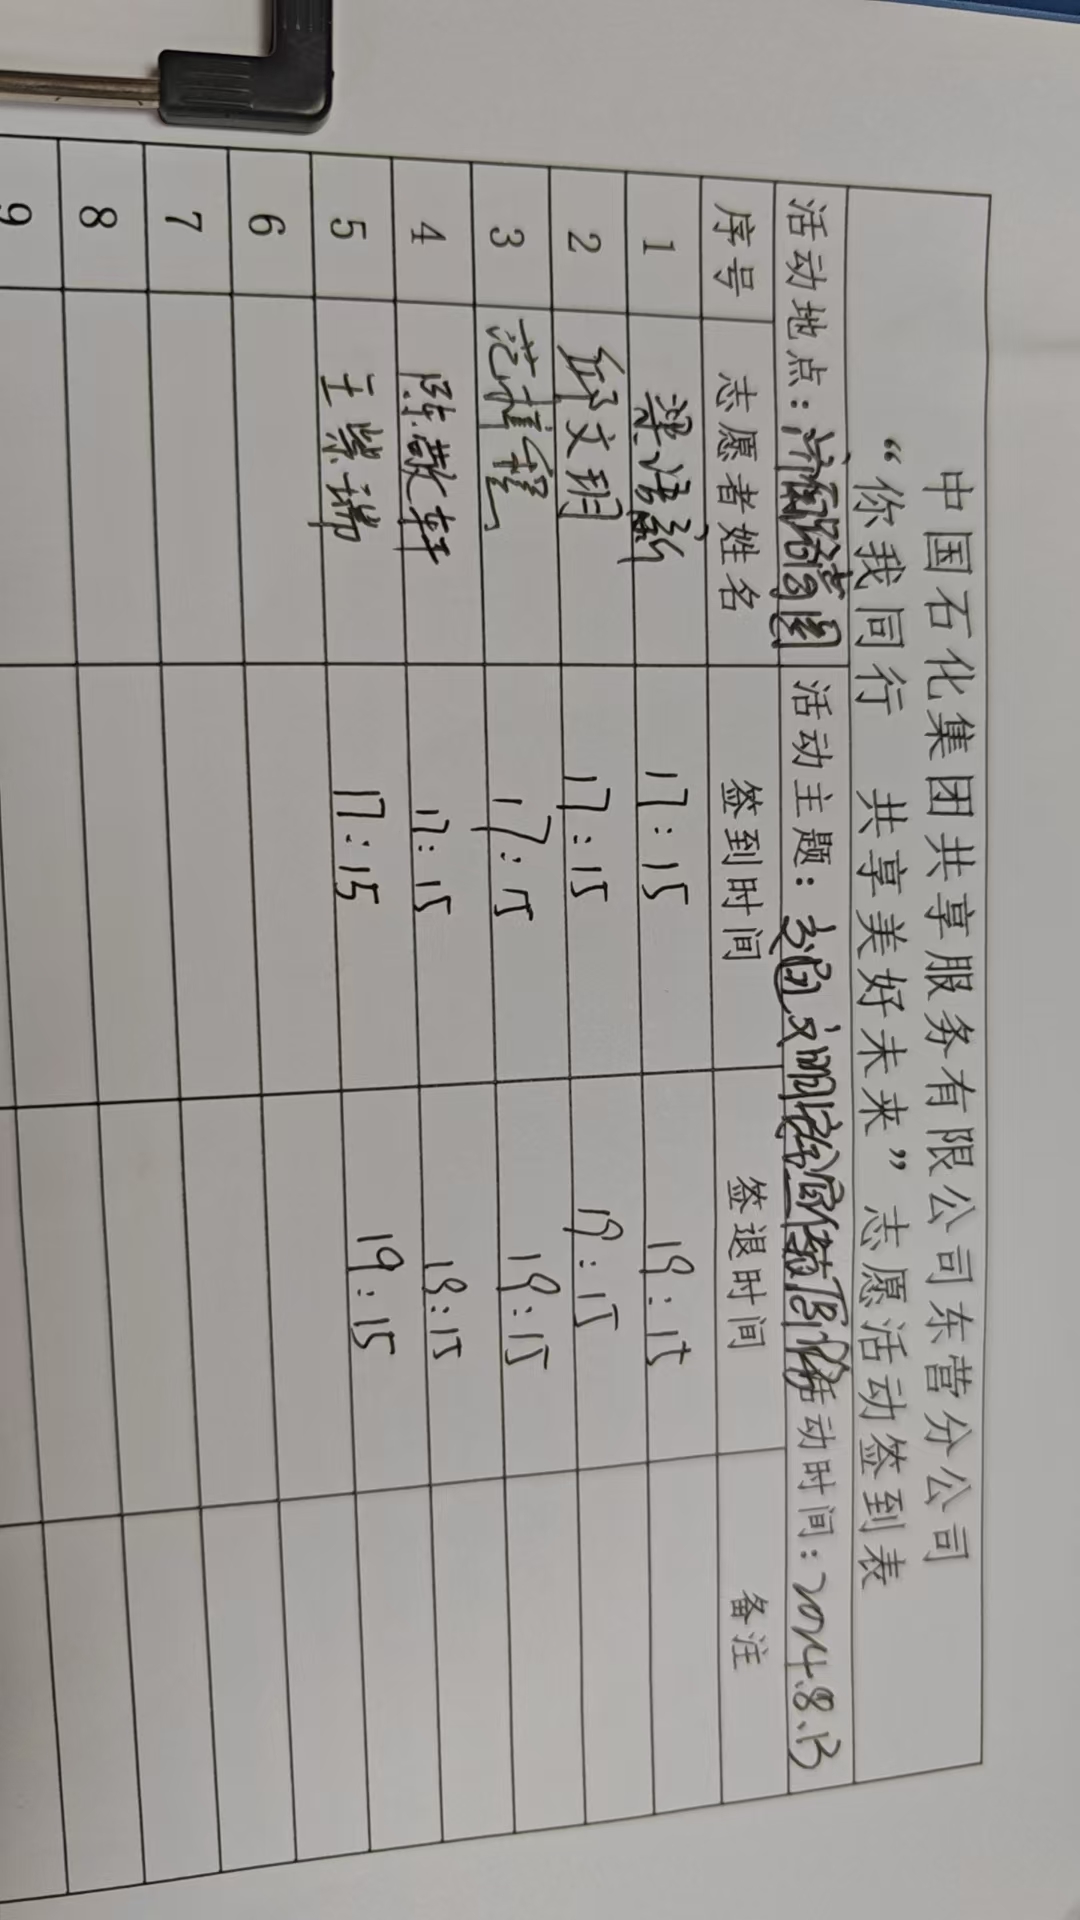 中国石化集团共享服务有限公司东营分公司
“你我同行 共享美好未来”志愿活动签到表
活动地点: 活动主题: 交通文明 活动时间:2024.8.13
序号 志愿者姓名 签到时间 签退时间 备注
1 梁语新 17:15 19:15
2 邱文玥 17:15 19:15
3 范 17:15 19:15
4 陈歆轩 17:15 19:15
5 王紫瑞 17:15 19:15
6
7
8
9